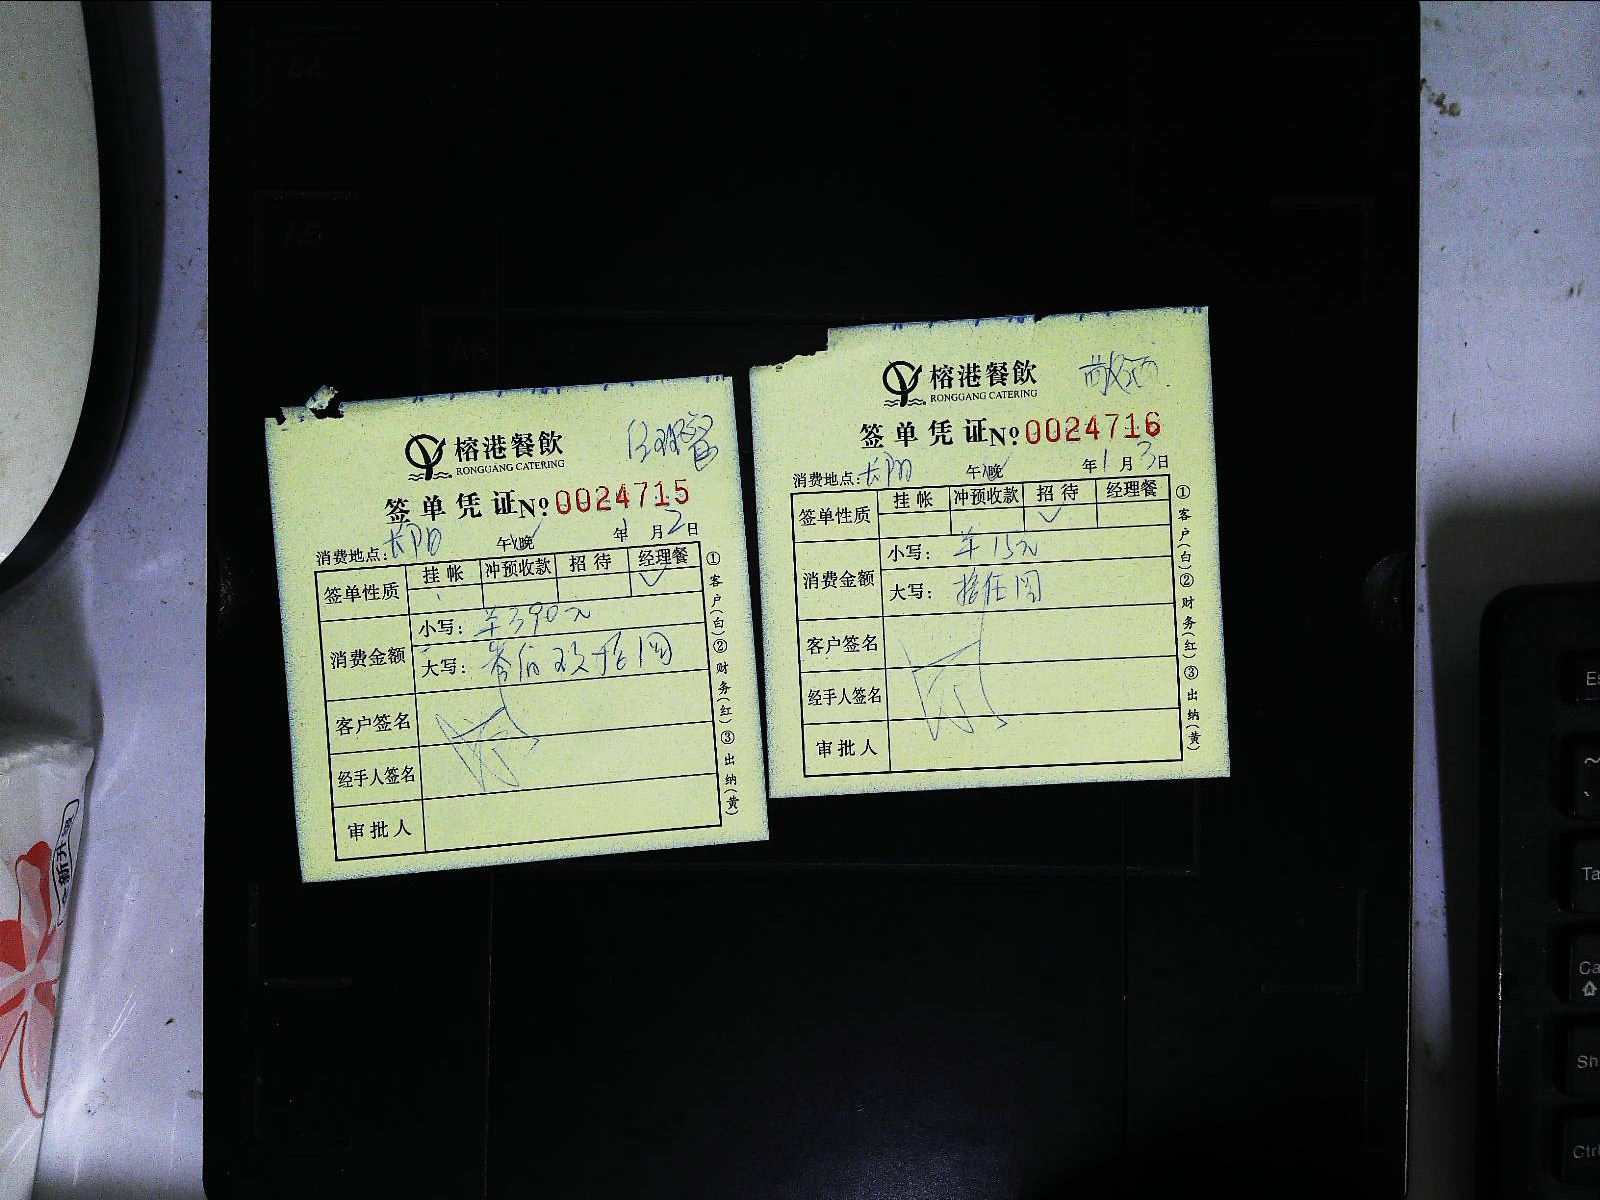 榕港餐飲
RONGGANG CATERING
签单凭证 № 0024715
消费地点: 长阳 午\晚 年 1 月 2 日
签单性质 挂帐 冲预收款 招待 经理餐
消费金额
小写: 羊390元
大写: 叁佰玖拾圆
客户签名
经手人签名
审批人
①客户(白)②财务(红)③出纳(黄)
榕港餐飲
RONGGANG CATERING
签单凭证 № 0024716
消费地点: 长阳 午\晚 年 1 月 3 日
签单性质 挂帐 冲预收款 招待 经理餐
消费金额
小写: 羊15元
大写: 拾伍圆
客户签名
经手人签名
审批人
①客户(白)②财务(红)③出纳(黄)
A5
Es
Ta
Ca
Sh
Ctrl